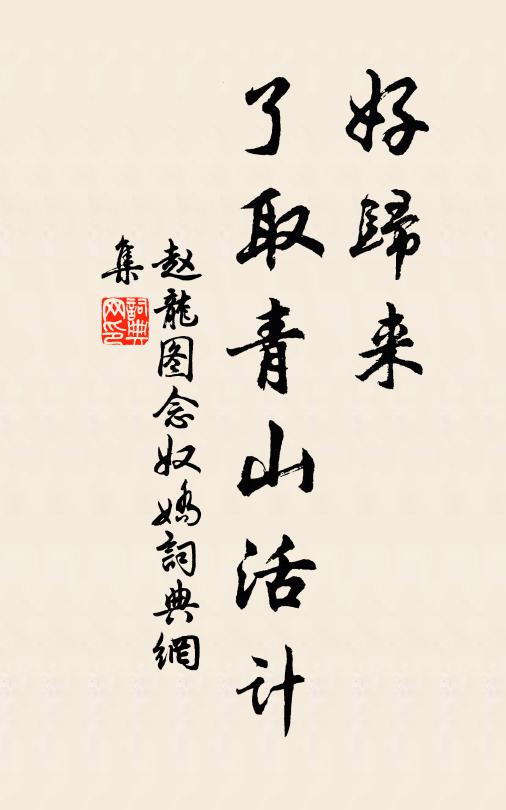 好歸来
了取青山活计
赵龍图念奴嬌詞典網
集
詞典网印